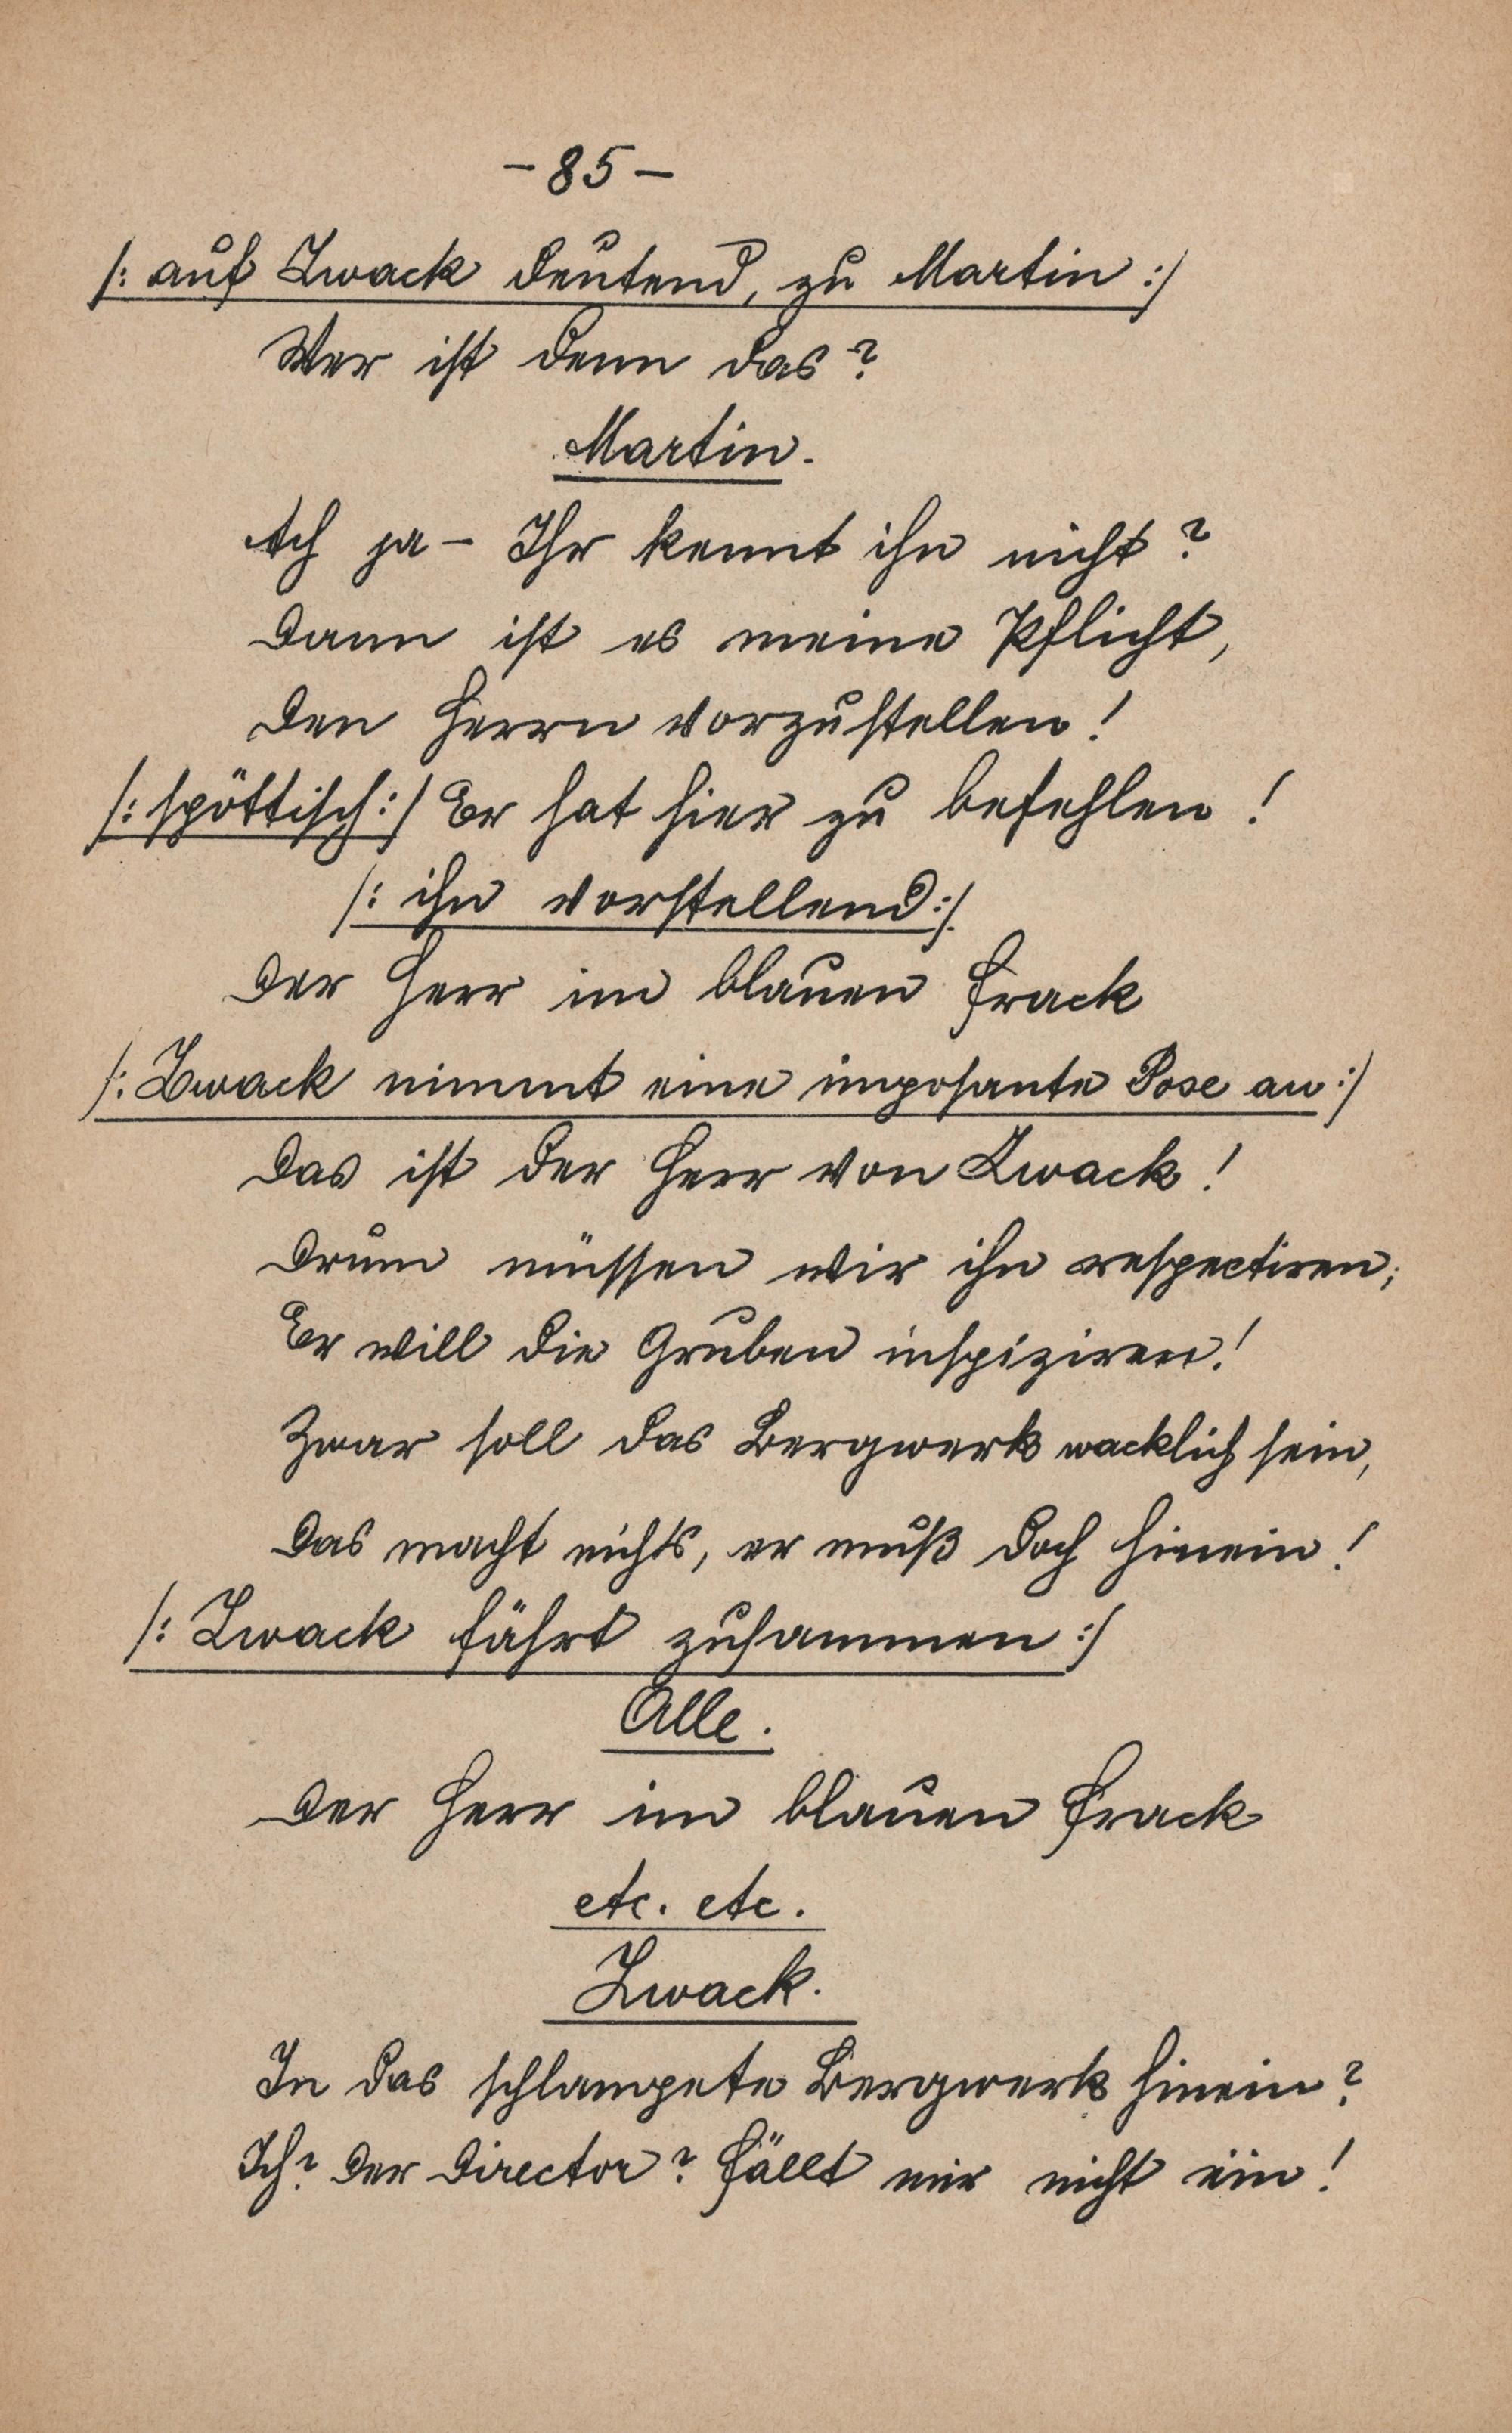 - 85 -
/: auf Zwack deutend, zu Martin :/
Wer ist denn das?
Martin.
Ach ja - Ihr kennt ihn nicht?
Dann ist es meine Pflicht,
Den Herrn vorzustellen!
/: spöttisch :/ Er hat hier zu befehlen!
/: ihn vorstellend :/
Der Herr im blauen Frack
/: Zwack nimmt eine imposante Pose an :/
Das ist der Herr von Zwack!
Drum müssen wir ihn respectiren;
Er will die Gruben inspiziren!
Zwar soll das Bergwerk wacklich sein,
Das macht nichts, er muß doch hinein!
/: Zwack fährt zusammen :/
Alle.
Der Herr im blauen Frack
etc. etc.
Zwack.
In das schlampete Bergwerk hinein?
Ich? Der Director? Fällt mir nicht ein!